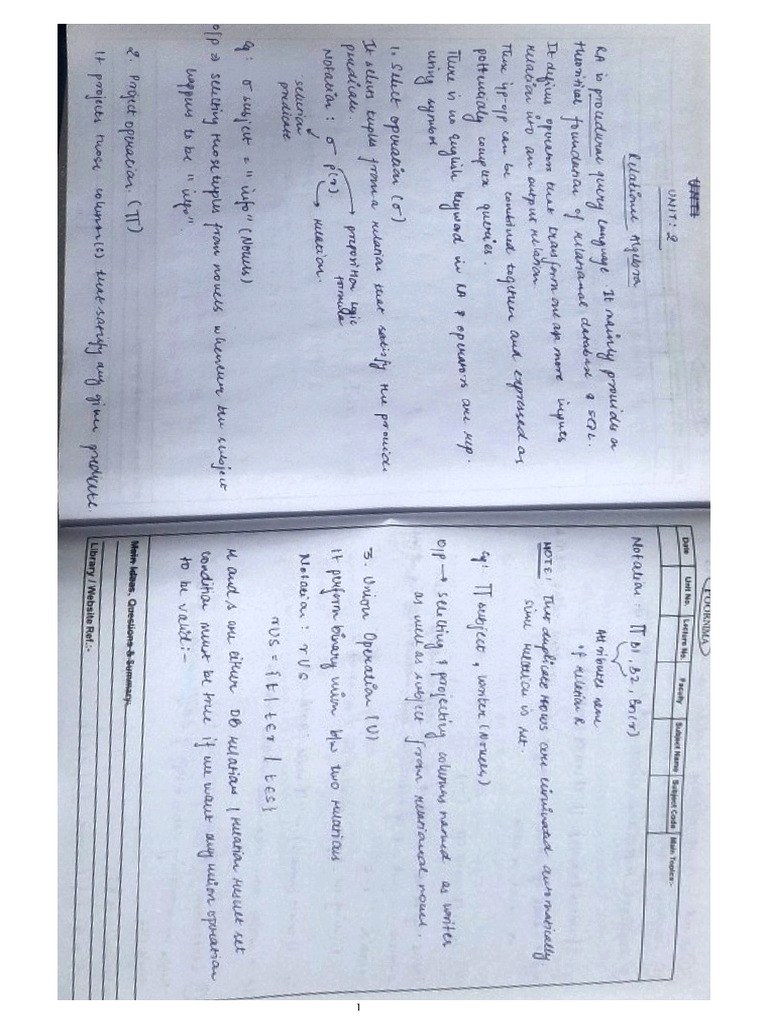 UNIT: 2
Relational Algebra
RA is procedural query language. It mainly provides a
theoritical foundation of relational database & SQL.
It defines operators that transform one or more inputs
relation into an output relation
These i/p-o/p can be combined together and expressed as
potentially complex queries.
There is no english keyword in RA & operators are rep.
using symbol
1. Select operation (σ)
It selects tuples from a relation that satisfy the provides
predicate.
Notation: σ p(r) → preposition logic
formula
→ relation.
selection
predicate
Eg: σ subject = "info" (Novels)
O/p ⇒ selecting those tuples from novels whenever the subject
happens to be "info".
2. Project operation. (∏)
It projects those column(s) that satisfy any given predicate.
POORNIMA
Date
Unit No.
Lecture No.
Faculty
Subject Name
Subject Code
Main Topics:-
Notation - ∏ B1, B2, Bn(r)
Attributes name
of relation R
NOTE: The duplicate rows are eliminated automatically
since relation is set.
Eg: ∏ subject, writer (Novels)
O/p → selecting & projecting columns named as writer
as well as subject from relational novel.
3. Union Operation (U)
It perform binary union b/w two relations
Notation: r U s
r U s = {t | t ∈ r | t ∈ s}
r and s are either DB relation / relation result set
condition must be true if we want any union operation
to be valid:-
Main Ideas, Questions & Summary:
Library / Website Ref.:-
1